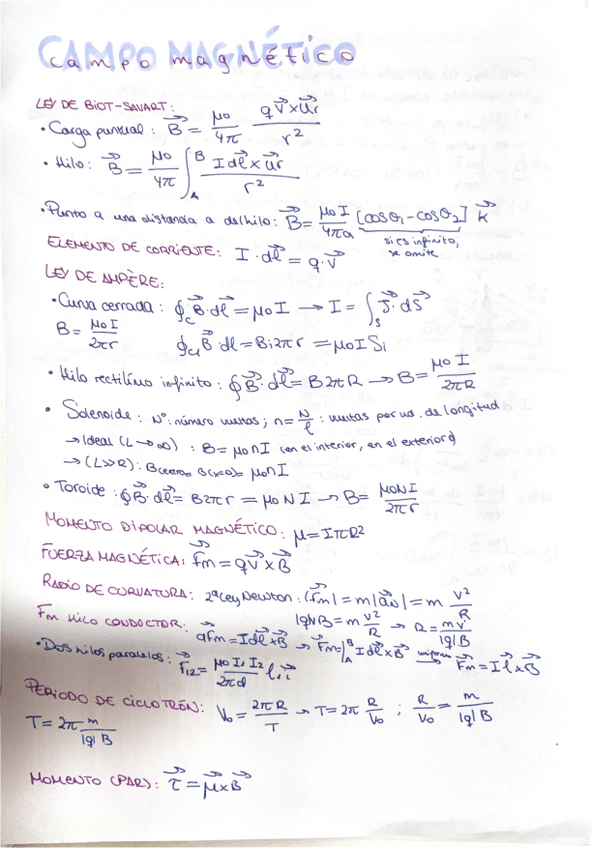 CAMPO MAGNÉTICO
campo magnético
LEY DE BIOT-SAVART:
• Carga puntual: B⃗ = μ₀/4π · q v⃗ × u⃗r / r²
• Hilo: B⃗ = μ₀/4π ∫_A^B I dl⃗ × u⃗r / r²
• Punto a una distancia a del hilo: B⃗ = μ₀ I / 4πa [cosθ₁ - cosθ₂] k⃗
si es infinito,
se omite
ELEMENTO DE CORRIENTE: I · dl⃗ = q · v⃗
LEY DE AMPÈRE:
• Curva cerrada: ∮_C B⃗ · dl⃗ = μ₀ I → I = ∫_S J⃗ · dS⃗
B = μ₀ I / 2πr ∮_C1 B⃗ · dl⃗ = B · 2πr = μ₀ I Si
• Hilo rectilíneo infinito: ∮ B⃗ · dl⃗ = B 2πR → B = μ₀ I / 2πR
• Solenoide: Nº: número vueltas; n = N/l : vueltas por ud. de longitud
→ Ideal (L → ∞) : B = μ₀ n I (en el interior, en el exterior 0)
→ (L >> R): B centro = B(x=0) = μ₀ n I
• Toroide: ∮ B⃗ · dl⃗ = B 2πr = μ₀ N I → B = μ₀ N I / 2πr
MOMENTO DIPOLAR MAGNÉTICO: μ = I π R²
FUERZA MAGNÉTICA: F⃗m = q v⃗ × B⃗
RADIO DE CURVATURA: 2ª Ley Newton: |F⃗m| = m |a⃗n| = m v²/R
|q| v B = m v²/R → R = m v / |q| B
Fm HILO CONDUCTOR: dF⃗m = I dl⃗ × B⃗ → F⃗m = ∫_A^B I dl⃗ × B⃗ uniforme→ F⃗m = I l⃗ × B⃗
• Dos hilos paralelos: F⃗₁₂ = μ₀ I₁ I₂ / 2πd l₁ i⃗
PERIODO DE CICLOTRÓN: V₀ = 2πR / T → T = 2π R/V₀ ; R/V₀ = m / |q| B
T = 2π m / |q| B
MOMENTO (PAR): τ⃗ = μ⃗ × B⃗